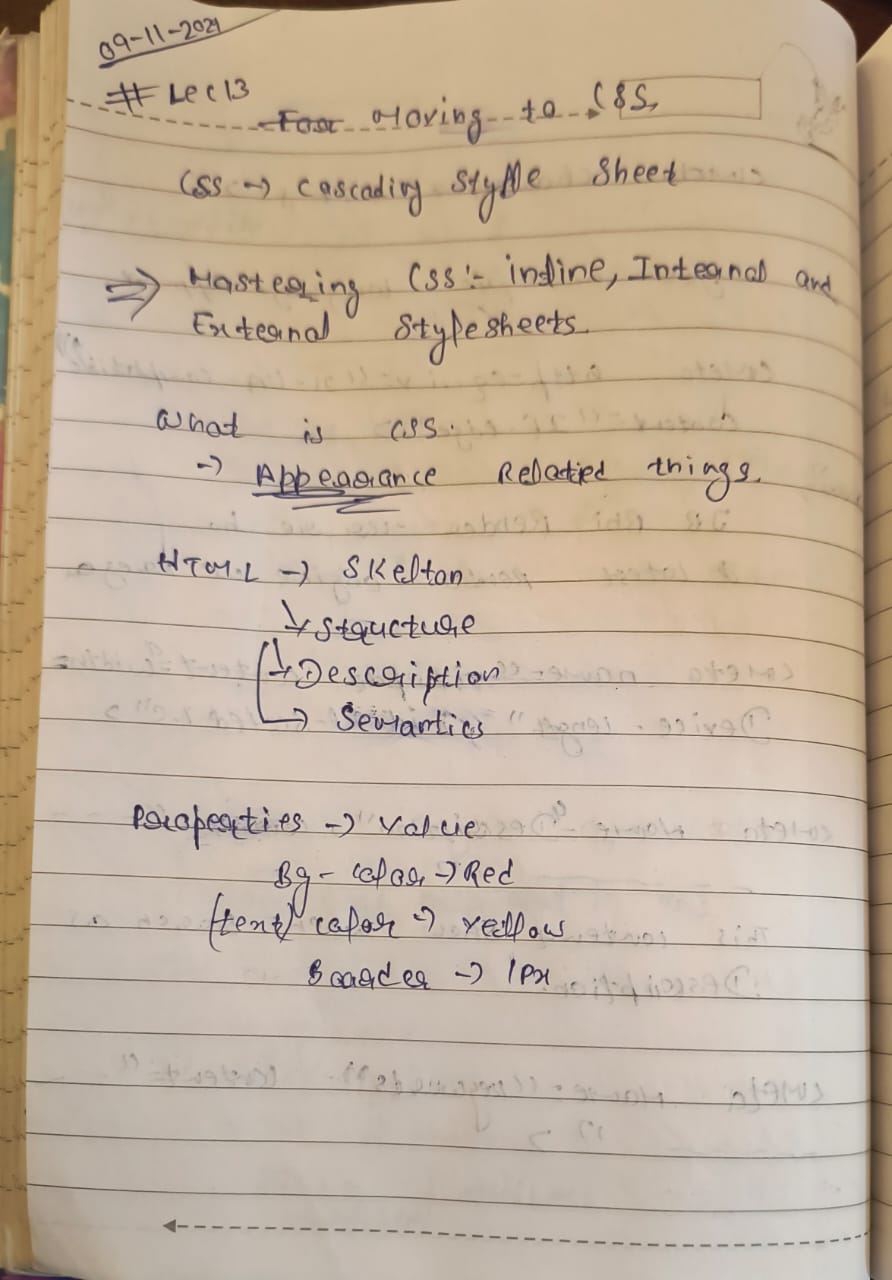 09-11-2024
# Lec 13
Moving to CSS
CSS → Cascading Style Sheet
⇒ Mastering CSS :- inline, Internal and
External Stylesheets.
What is CSS.
→ Appearance Related things.
HTML → Skelton
↳ Structure
↳ Description
→ Semantics
Properties → Value
Bg - color → Red
(text) color → yellow
Boarder → 1Px